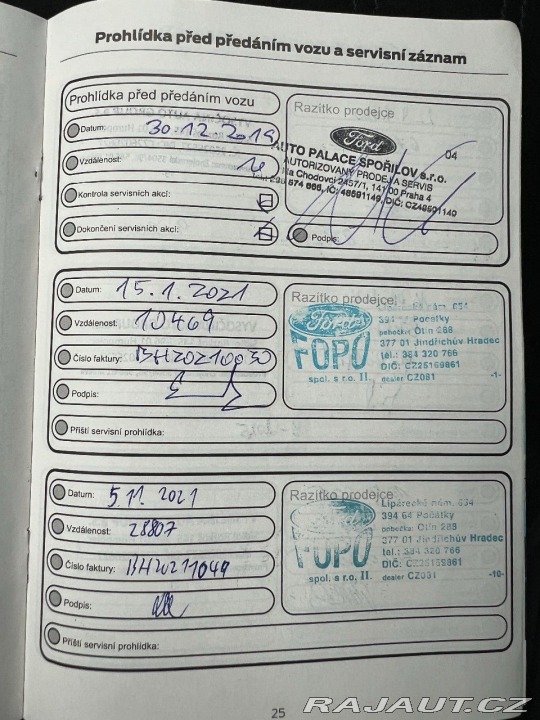 Prohlídka před předáním vozu a servisní záznam
Prohlídka před předáním vozu
Datum: 30.12.2019
Vzdálenost:
Kontrola servisních akcí:
Dokončení servisních akcí:
Razítko prodejce
Ford
04
AUTO PALACE SPOŘILOV s.r.o.
AUTORIZOVANÝ PRODEJ A SERVIS
Na Chodovci 2457/1, 141 00 Praha 4
574 666, IČ: 48591149, DIČ: CZ48591149
Podpis
Datum: 15.1.2021
Vzdálenost: 10469
Číslo faktury: BH20210030
Podpis:
Příští servisní prohlídka:
Razítko prodejce
Ford
FOPO
spol. s r.o. II.
nám. 694
394 64 Počátky
pobočka: Otín 289
377 01 Jindřichův Hradec
tel.: 384 320 766
DIČ: CZ25159861
dealer CZ081 -1-
Datum: 5.11.2021
Vzdálenost: 28807
Číslo faktury: BH20211049
Podpis:
Příští servisní prohlídka:
Razítko prodejce
FOPO
spol. s r.o. II.
nám. 694
394 64 Počátky
pobočka: Otín 289
377 01 Jindřichův Hradec
tel.: 384 320 766
DIČ: CZ25159861
dealer CZ081 -10-
25
RAJAUT.CZ